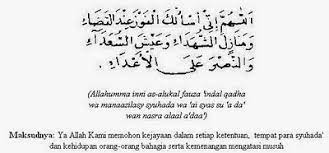 اَللّٰهُمَّ اِنِّى أَسْأَلُكَ الْفَوْزَ عِنْدَ الْقَضَاءِ
وَمَنَازِلَ الشُّهَدَاءِ وَعَيْشَ السُّعَدَاءِ
وَالنَّصْرَ عَلَى الْأَعْدَاءِ.
(Allahumma inni as-alukal fauza 'indal qadha
wa manaazilasy syuhada wa 'ai syas su 'a da'
wan nasra alaal a'daa')
Maksudnya: Ya Allah Kami memohon kejayaan dalam setiap ketentuan, tempat para syuhada'
dan kehidupan orang-orang bahagia serta kemenangan mengatasi musuh